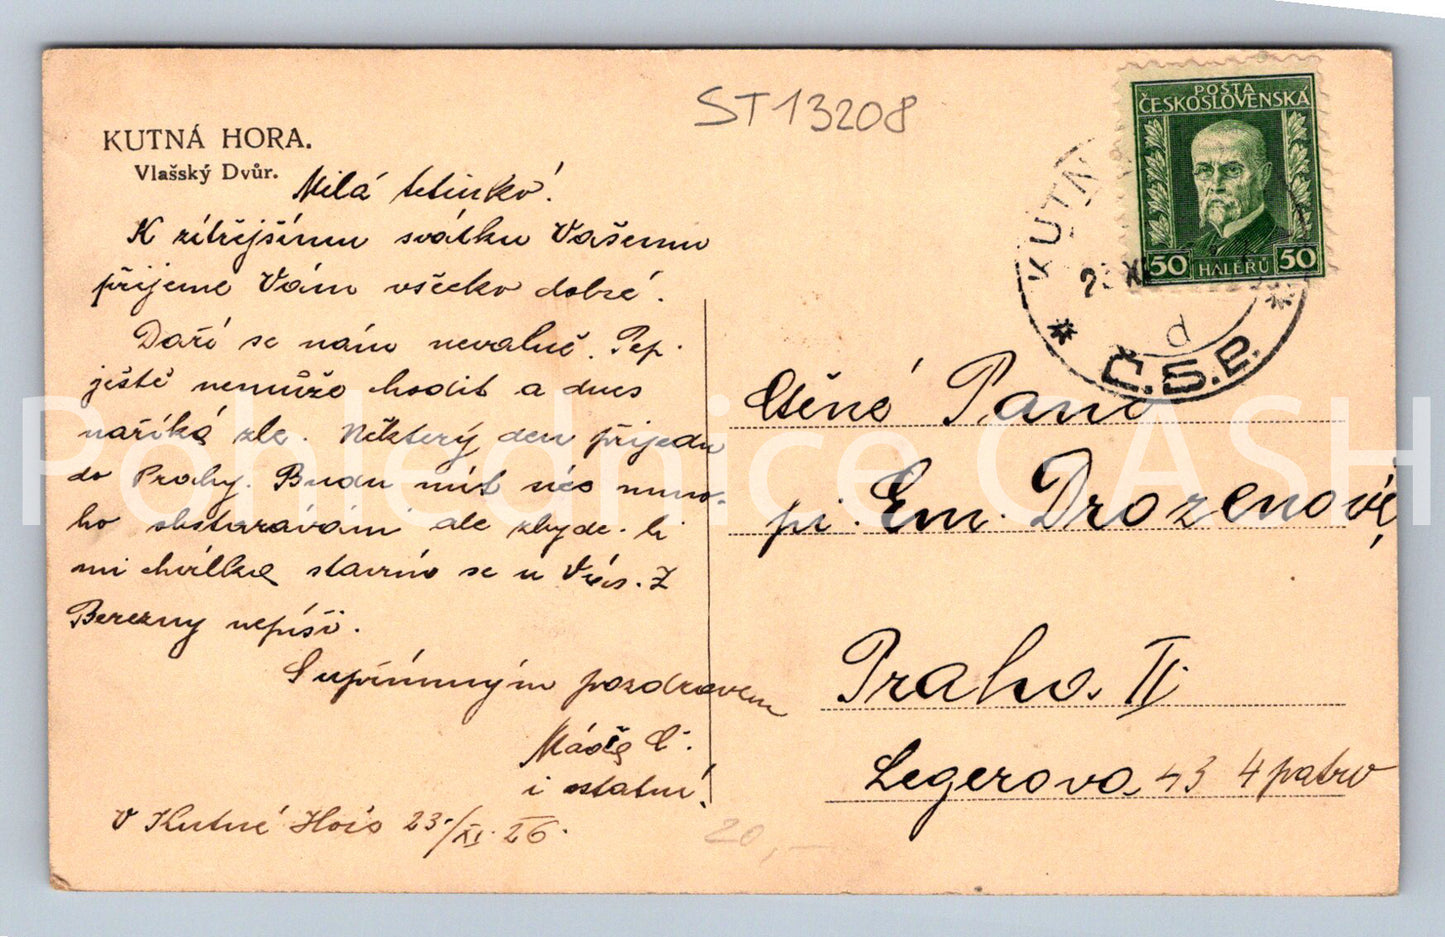 ST13208
KUTNÁ HORA.
Vlašský Dvůr.
Milá tetinko!
K zítřejšímu svátku Vašemu
přijeme Vám všecko dobré.
Daří se nám nevalně. Pep.
ještě nemůže chodit a dnes
naříká zle. Některý den přijedu
do Prahy. Budu mít něco mno-
ho obstarávání ale zbyde-li
mi chvilka stavím se u Vás. Z
Berezny nepíší.
S upřímným pozdravem
Máňa C.
i ostatní!
V Kutné Hoře 23./XI. 26.
20,-
POŠTA
ČESKOSLOVENSKÁ
50 HALÉŘŮ 50
KUTN
XI
d
* Č.S.P. *
Ctěné Paní
pí. Em. Drozenové,
Praha II.
Legerova 43 4 patro
Pohlednice CASH